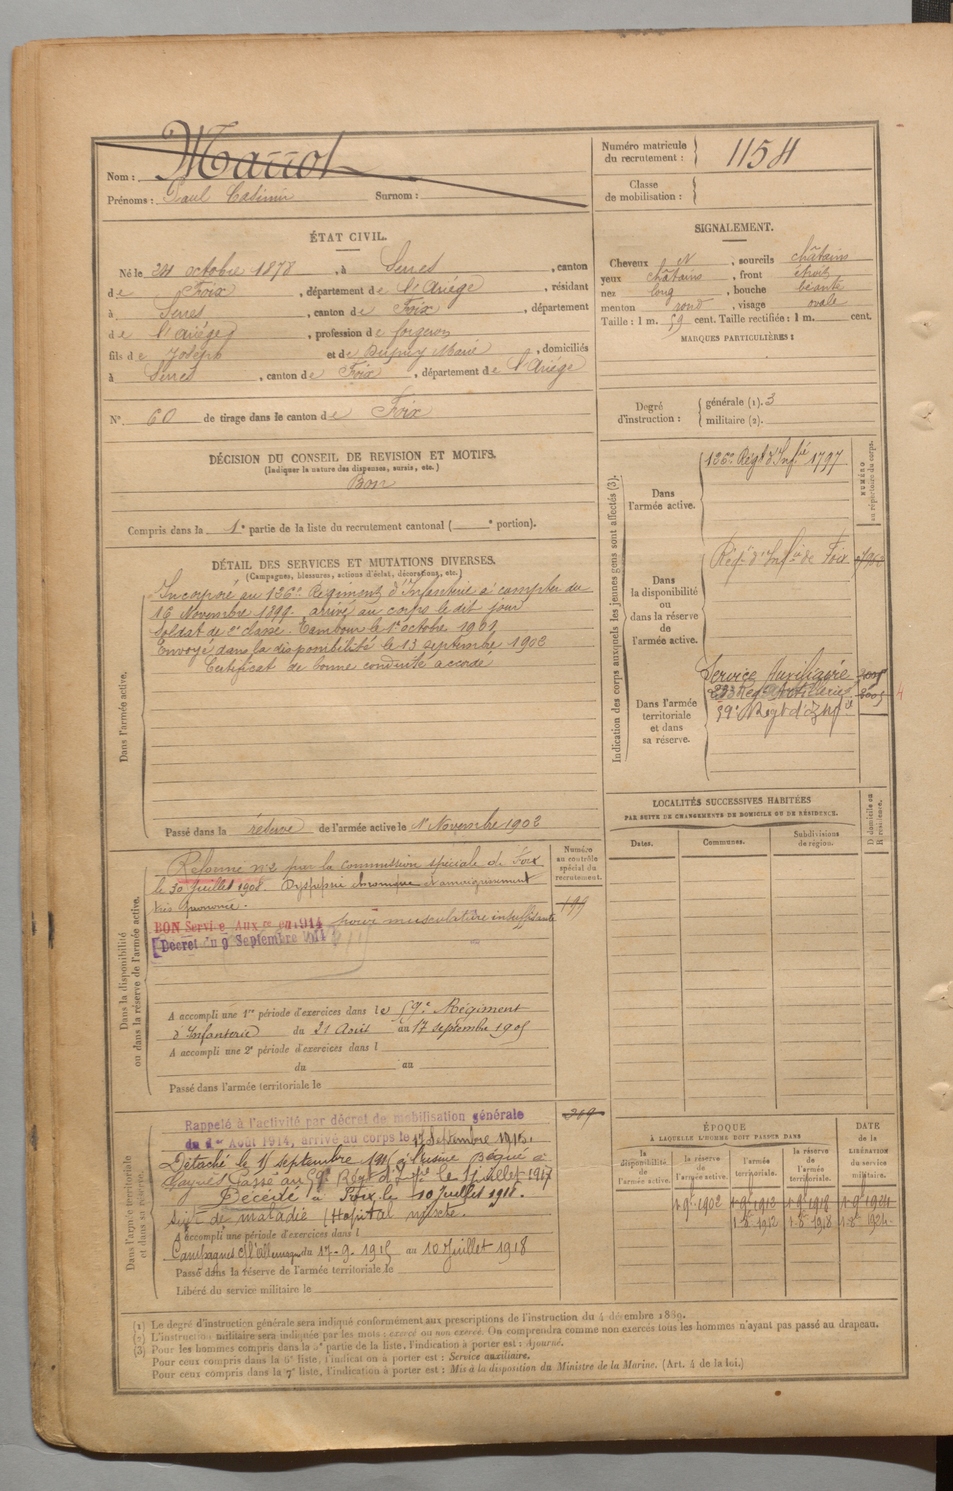 Nom : Marrot
Prénoms : Paul Casimir Surnom :
Numéro matricule du recrutement : 1154
Classe de mobilisation :
ÉTAT CIVIL.
Né le 24 octobre 1878, à Serres, canton
de Foix, département de l'Ariège, résidant
à Serres, canton de Foix, département
de l'Ariège, profession de forgeron
fils de Joseph et de Dupuy Marie, domiciliés
à Serres, canton de Foix, département de l'Ariège
N°. 60 de tirage dans le canton de Foix
SIGNALEMENT.
Cheveux N, sourcils châtains
yeux châtains, front étroit
nez long, bouche béante
menton rond, visage ovale
Taille : 1 m. 59 cent. Taille rectifiée : 1 m. cent.
MARQUES PARTICULIÈRES :
Degré d'instruction : générale (1). 3
militaire (2).
DÉCISION DU CONSEIL DE REVISION ET MOTIFS.
(Indiquer la nature des dispenses, sursis, etc.)
Bon
Compris dans la 1e partie de la liste du recrutement cantonal ( e portion).
DÉTAIL DES SERVICES ET MUTATIONS DIVERSES.
(Campagnes, blessures, actions d'éclat, décorations, etc.)
Dans l'armée active.
Incorporé au 126e Régiment d'Infanterie à compter du
16 Novembre 1899. arrivé au corps le dit jour
Soldat de 2e classe. Tambour le 1er octobre 1901
Envoyé dans la disponibilité le 13 septembre 1902
Certificat de bonne conduite accordé
Passé dans la réserve de l'armée active le 1er Novembre 1902
Indication des corps auxquels les jeunes gens sont affectés (3).
NUMÉRO au répertoire du corps.
Dans l'armée active.
126e Régt d'Infie 1797
Dans la disponibilité ou dans la réserve de l'armée active.
Régt d'Infie de Foix
Dans l'armée territoriale et dans sa réserve.
Service Auxiliaire
59e Régt d'Infie
LOCALITÉS SUCCESSIVES HABITÉES
PAR SUITE DE CHANGEMENTS DE DOMICILE OU DE RÉSIDENCE.
Dates. Communes. Subdivisions de région. D domicile ou R résidence.
Dans la disponibilité ou dans la réserve de l'armée active.
Numéro au contrôle spécial du recrutement.
Réformé n°2 par la commission spéciale de Foix
le 30 Juillet 1908. Dyspepsie chronique et amaigrissement
très prononcé.
BON Service Auxre en 1914 pour musculature insuffisante
Décret du 9 Septembre 1914
A accompli une 1re période d'exercices dans le 59e Régiment
d'Infanterie du 21 Août au 17 septembre 1905
A accompli une 2e période d'exercices dans l
du au
Passé dans l'armée territoriale le
Dans l'armée territoriale et dans sa réserve.
Rappelé à l'activité par décret de mobilisation générale
du 1er Août 1914, arrivé au corps le 17 Septembre 1915.
Détaché le 15 septembre 1915 à l'usine
Passé au 59e Régt d'Infie le 1er juillet 1917
Décédé à Foix, le 10 juillet 1918.
suite de maladie (Hôpital mixte.
A accompli une période d'exercices dans l
Campagnes Cl'allemagne du 17-9-1915 au 10 Juillet 1918
Passé dans la réserve de l'armée territoriale le
Libéré du service militaire le
ÉPOQUE
À LAQUELLE L'HOMME DOIT PASSER DANS
DATE de la LIBÉRATION du service militaire.
la disponibilité de l'armée active. la réserve de l'armée active. l'armée territoriale. la réserve de l'armée territoriale.
1-9bre 1902 1-9bre 1912 1-9bre 1918 1-9bre 1924
1-8bre 1912 1-8bre 1918 1-8bre 1924
(1) Le degré d'instruction générale sera indiqué conformément aux prescriptions de l'instruction du 4 décembre 1889.
(2) L'instruction militaire sera indiquée par les mots : exercé ou non exercé. On comprendra comme non exercés tous les hommes n'ayant pas passé au drapeau.
(3) Pour les hommes compris dans la 5e partie de la liste, l'indication à porter est : Ajourné.
Pour ceux compris dans la 6e liste, l'indication à porter est : Service auxiliaire.
Pour ceux compris dans la 7e liste, l'indication à porter est : Mis à la disposition du Ministre de la Marine. (Art. 4 de la loi.)